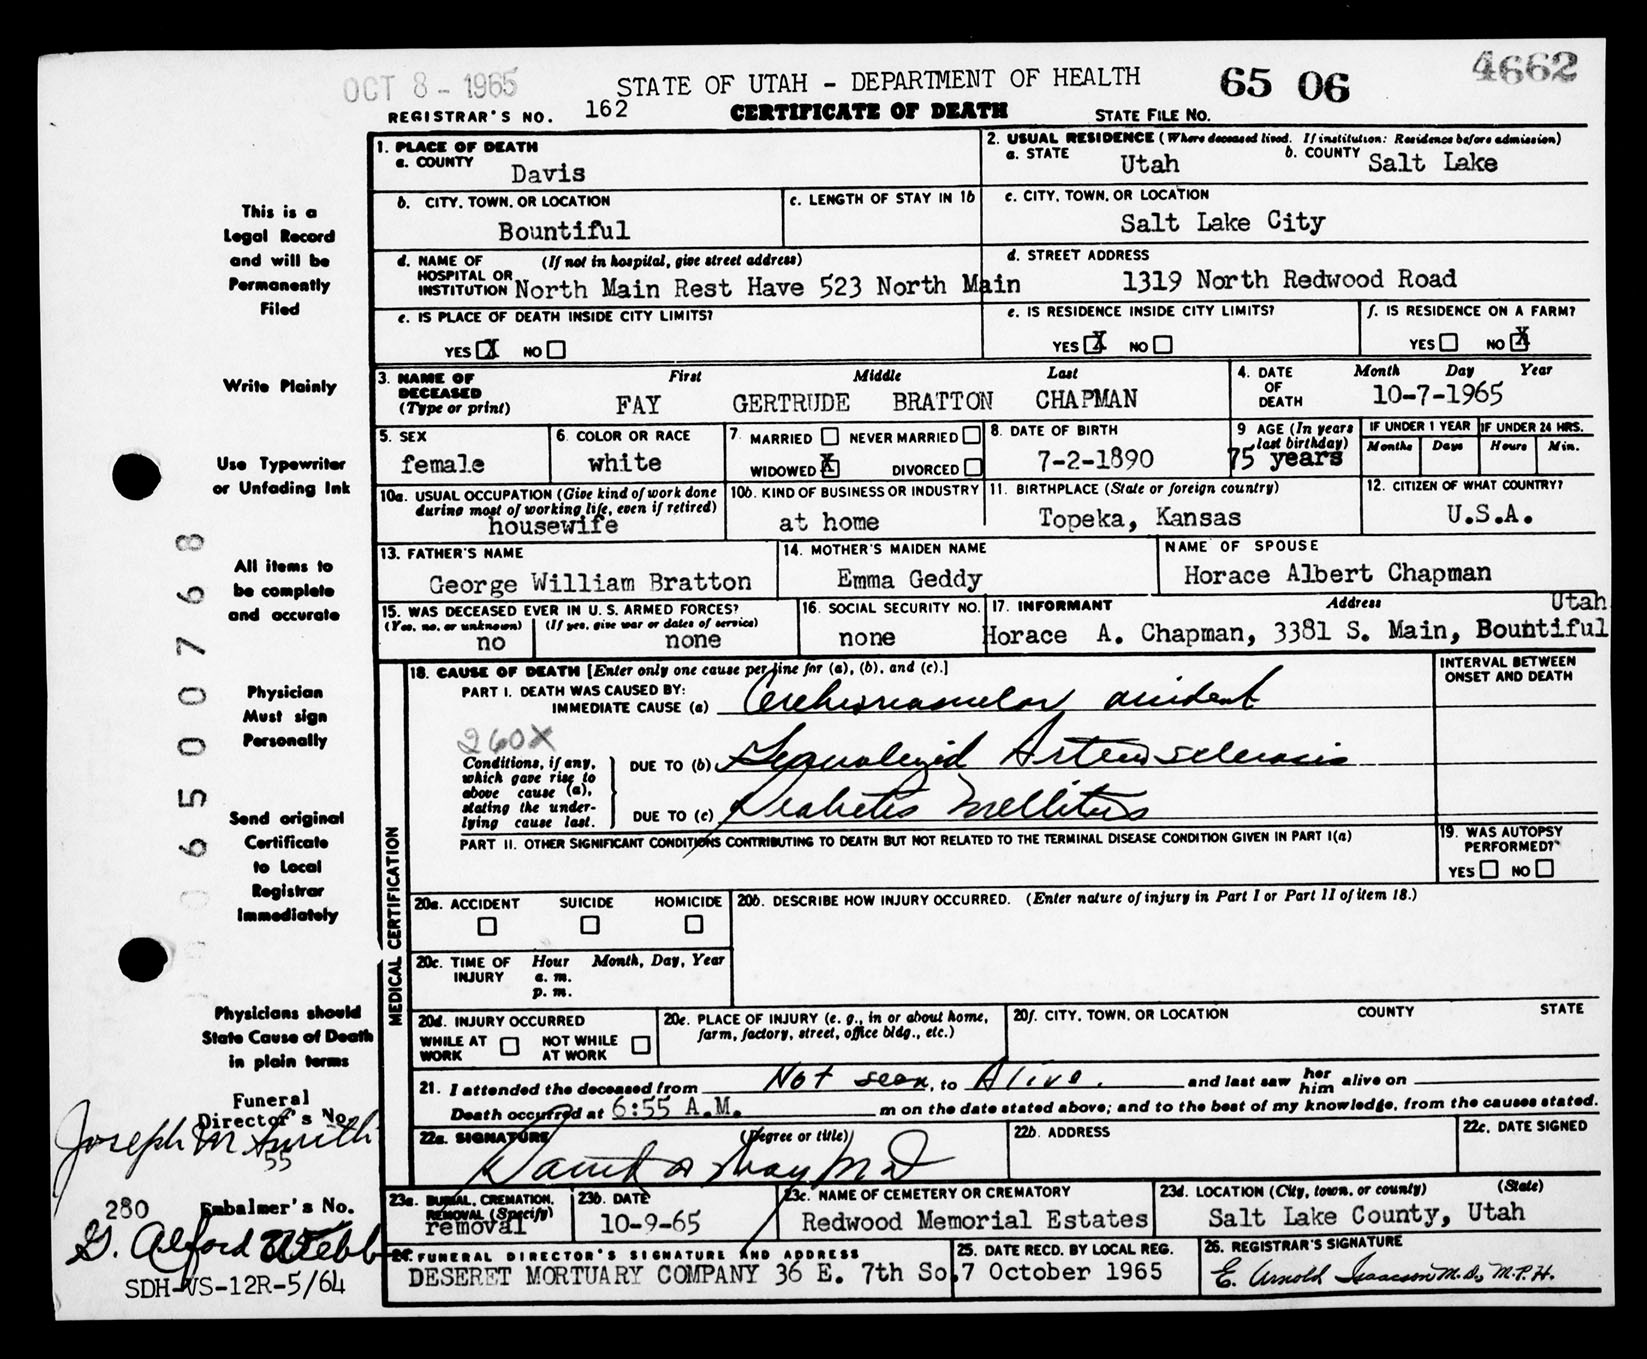 OCT 8 - 1965
STATE OF UTAH - DEPARTMENT OF HEALTH
65 06
4662
REGISTRAR'S NO. 162
CERTIFICATE OF DEATH
STATE FILE NO.
This is a
Legal Record
and will be
Permanently
Filed
Write Plainly
Use Typewriter
or Unfading Ink
All items to
be complete
and accurate
Physician
Must sign
Personally
Send original
Certificate
to Local
Registrar
Immediately
Physicians should
State Cause of Death
in plain terms
Funeral
Director's No.
Joseph M Smith
55
280 Embalmer's No.
G. Alford Webb
SDH-VS-12R-5/64
0 6 5 0 0 7 6 8
1. PLACE OF DEATH
a. COUNTY Davis
2. USUAL RESIDENCE (Where deceased lived. If institution: Residence before admission)
a. STATE Utah b. COUNTY Salt Lake
b. CITY, TOWN, OR LOCATION Bountiful
c. LENGTH OF STAY IN 1b
c. CITY, TOWN, OR LOCATION
Salt Lake City
d. NAME OF HOSPITAL OR INSTITUTION (If not in hospital, give street address)
North Main Rest Have 523 North Main
d. STREET ADDRESS
1319 North Redwood Road
e. IS PLACE OF DEATH INSIDE CITY LIMITS?
YES X NO
e. IS RESIDENCE INSIDE CITY LIMITS?
YES X NO
f. IS RESIDENCE ON A FARM?
YES NO X
3. NAME OF DECEASED (Type or print)
First Middle Last
FAY GERTRUDE BRATTON CHAPMAN
4. DATE OF DEATH Month Day Year
10-7-1965
5. SEX
female
6. COLOR OR RACE
white
7. MARRIED NEVER MARRIED
WIDOWED X DIVORCED
8. DATE OF BIRTH
7-2-1890
9 AGE (In years last birthday)
75 years
IF UNDER 1 YEAR Months Days
IF UNDER 24 HRS. Hours Min.
10a. USUAL OCCUPATION (Give kind of work done during most of working life, even if retired)
housewife
10b. KIND OF BUSINESS OR INDUSTRY
at home
11. BIRTHPLACE (State or foreign country)
Topeka, Kansas
12. CITIZEN OF WHAT COUNTRY?
U.S.A.
13. FATHER'S NAME
George William Bratton
14. MOTHER'S MAIDEN NAME
Emma Geddy
NAME OF SPOUSE
Horace Albert Chapman
15. WAS DECEASED EVER IN U. S. ARMED FORCES?
(Yes, no, or unknown) (If yes, give war or dates of service)
no none
16. SOCIAL SECURITY NO.
none
17. INFORMANT Address Utah
Horace A. Chapman, 3381 S. Main, Bountiful
MEDICAL CERTIFICATION
18. CAUSE OF DEATH [Enter only one cause per line for (a), (b), and (c).]
INTERVAL BETWEEN ONSET AND DEATH
PART I. DEATH WAS CAUSED BY:
IMMEDIATE CAUSE (a) Cerebrovascular accident
260X
Conditions, if any, which gave rise to above cause (a), stating the underlying cause last.
DUE TO (b) Generalized Arteriosclerosis
DUE TO (c) Diabetes Mellitus
PART II. OTHER SIGNIFICANT CONDITIONS CONTRIBUTING TO DEATH BUT NOT RELATED TO THE TERMINAL DISEASE CONDITION GIVEN IN PART I(a)
19. WAS AUTOPSY PERFORMED?
YES NO
20a. ACCIDENT SUICIDE HOMICIDE
20b. DESCRIBE HOW INJURY OCCURRED. (Enter nature of injury in Part I or Part II of item 18.)
20c. TIME OF INJURY Hour Month, Day, Year
a. m.
p. m.
20d. INJURY OCCURRED
WHILE AT WORK NOT WHILE AT WORK
20e. PLACE OF INJURY (e. g., in or about home, farm, factory, street, office bldg., etc.)
20f. CITY, TOWN, OR LOCATION COUNTY STATE
21. I attended the deceased from Not seen, to Alive. and last saw her him alive on
Death occurred at 6:55 A.M. m on the date stated above; and to the best of my knowledge, from the causes stated.
22a. SIGNATURE (Degree or title)
M D
22b. ADDRESS
22c. DATE SIGNED
23a. BURIAL, CREMATION, REMOVAL (Specify)
removal
23b. DATE
10-9-65
23c. NAME OF CEMETERY OR CREMATORY
Redwood Memorial Estates
23d. LOCATION (City, town, or county) (State)
Salt Lake County, Utah
24. FUNERAL DIRECTOR'S SIGNATURE AND ADDRESS
DESERET MORTUARY COMPANY 36 E. 7th So.
25. DATE RECD. BY LOCAL REG.
7 October 1965
26. REGISTRAR'S SIGNATURE
E. Arnold Isaacson M.D., M.P.H.